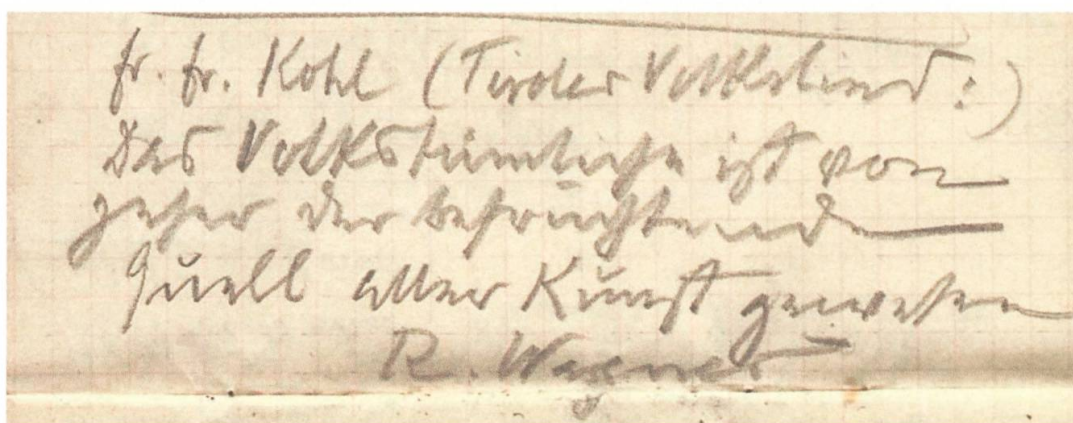 Fr. Fr. Kohl (Tiroler Volkslied:)
Das Volkstümliche ist von
jeher der befruchtende
Quell aller Kunst gewesen
R. Wagner